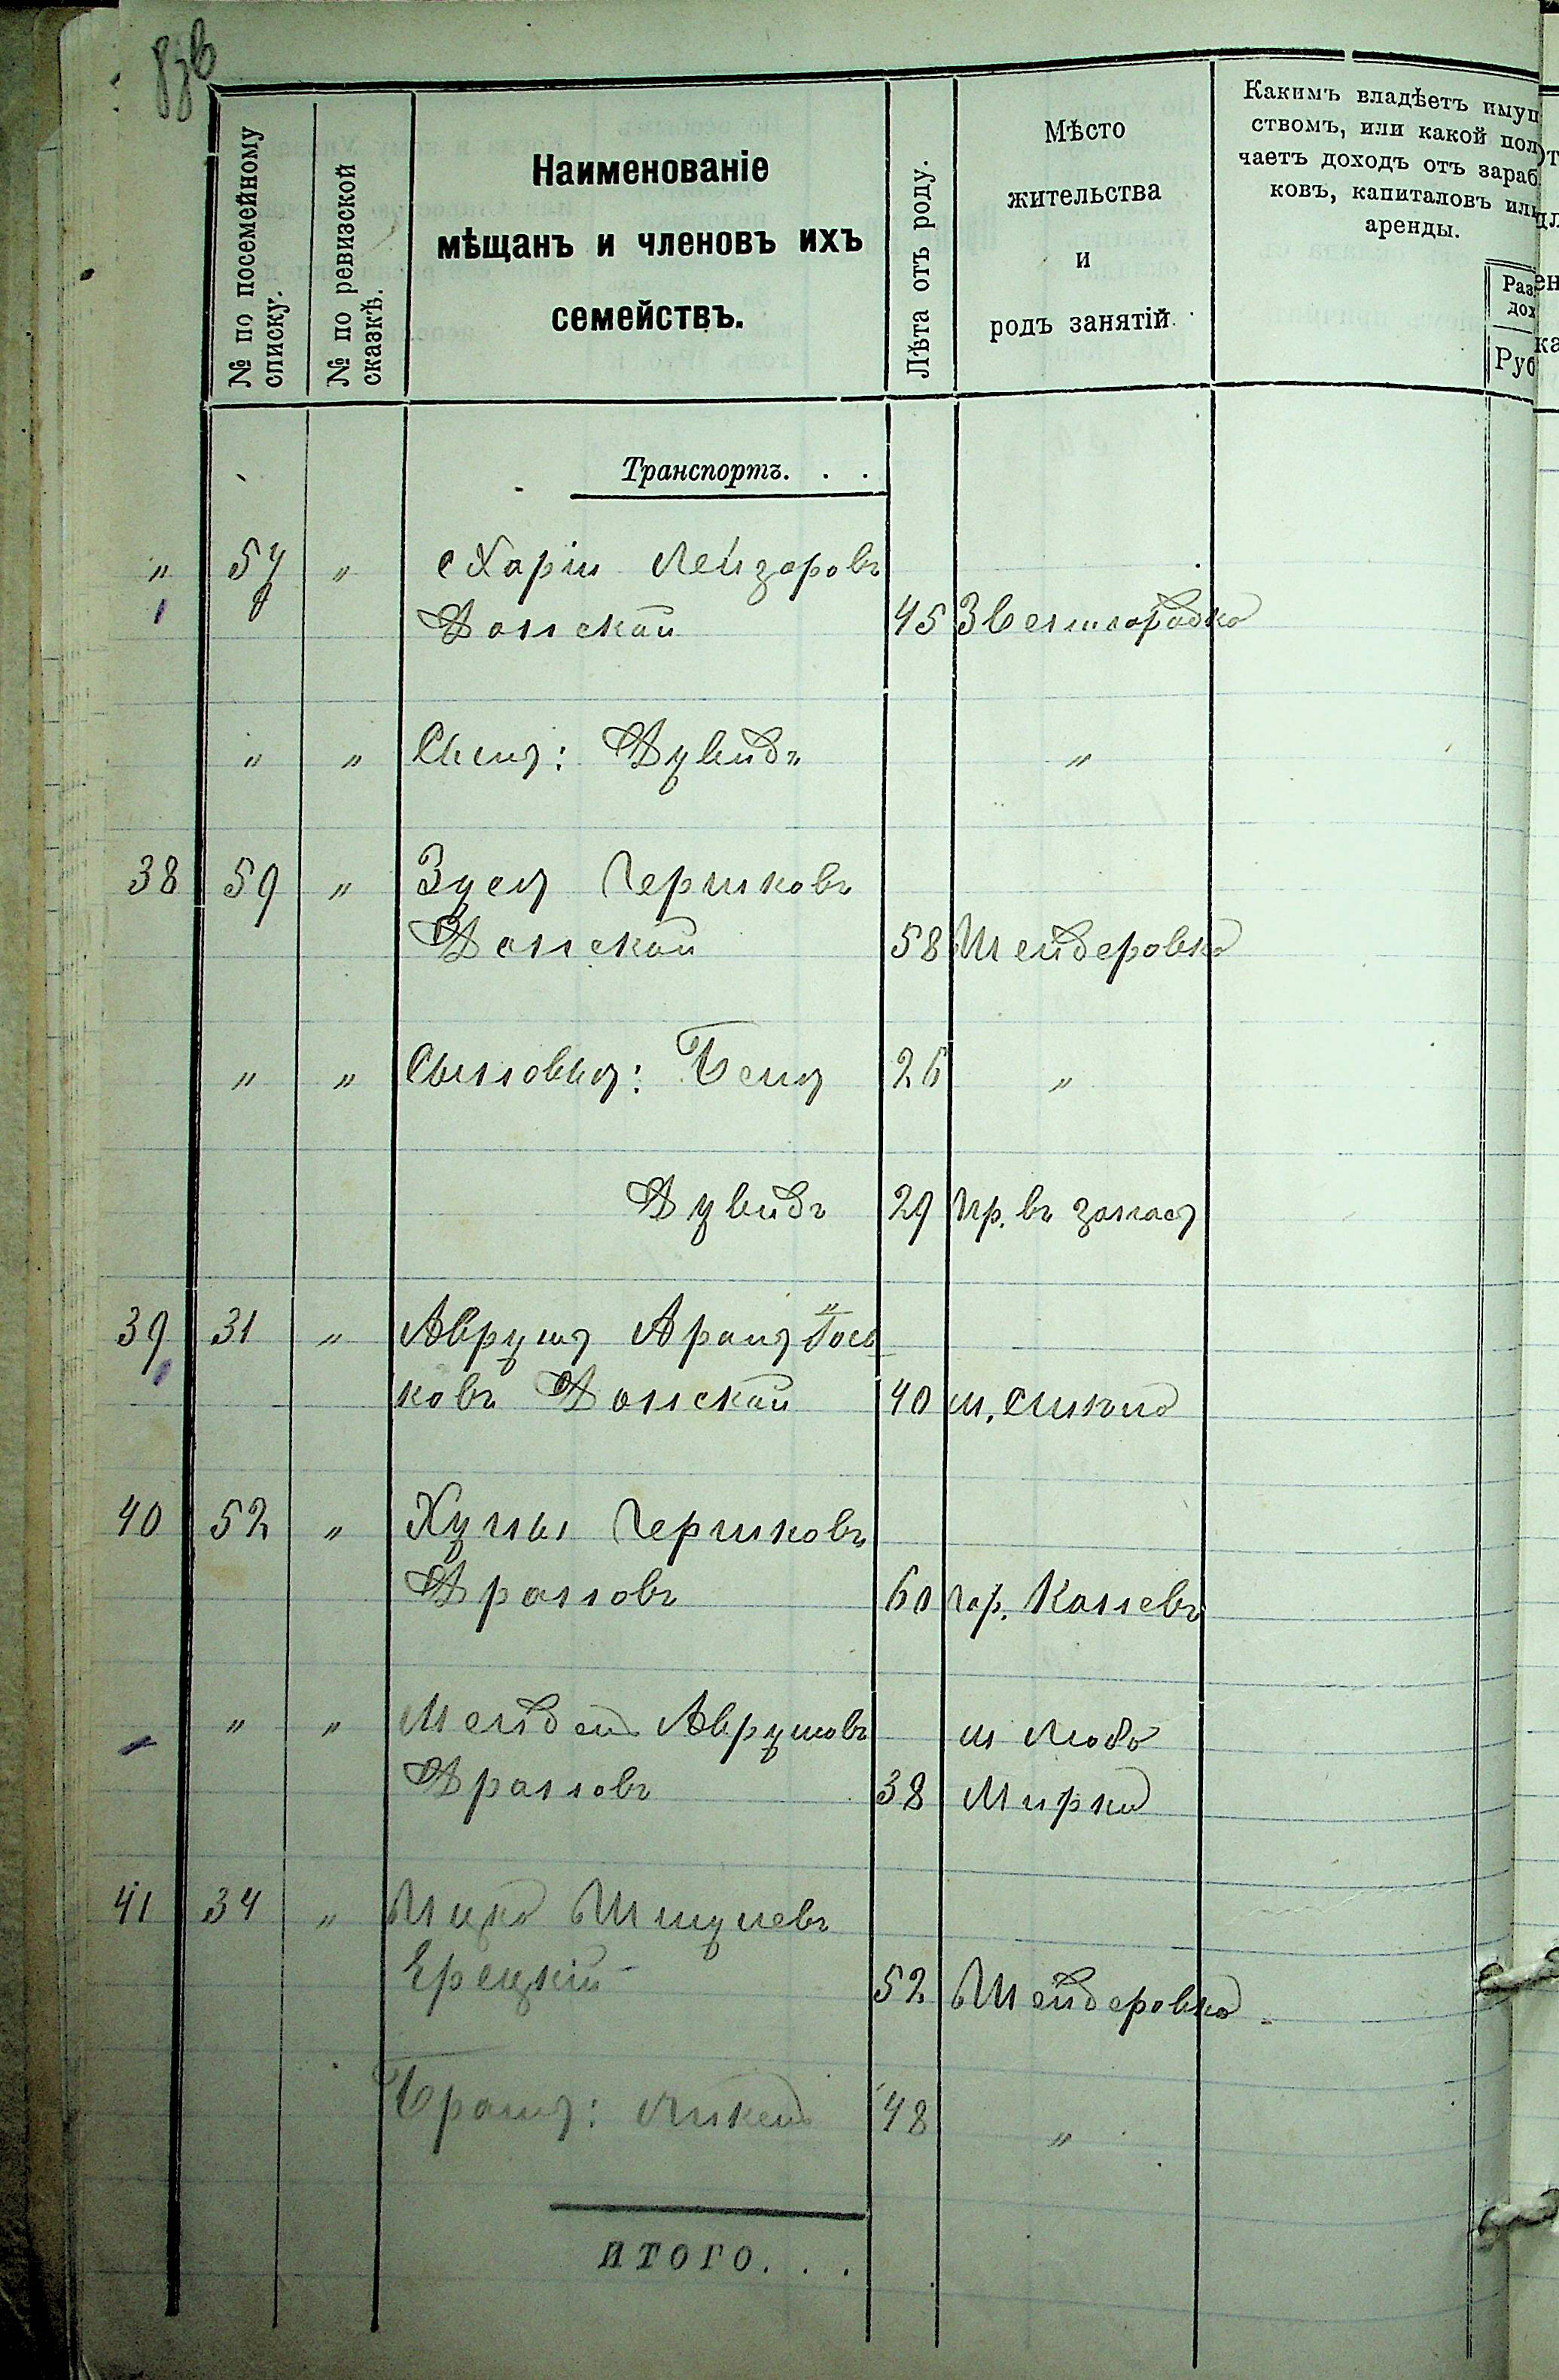 № по посемейному
списку.
№ по ревизской
сказкѣ.
Наименованіе
мѣщанъ и членовъ ихъ
семействъ.
Лѣта отъ роду.
Мѣсто
жительства
и
родъ занятій.
Какимъ владѣетъ имущ
ствомъ, или какой пол
чаетъ доходъ отъ зараб
ковъ, капиталовъ или
аренды.
Раз
дох
Руб
Транспортъ. . .
" 57 " Лейзоровъ
Донской 45 Звенигородка
" " Сынъ: Дувидъ "
38 59 " Зусь Гершковъ
Донской 58 Шендеровка
" " Сыновья: Беня 26 "
Дувидъ 29 пр. въ запасъ
39 31 " Аврумъ Аронъ Іось
ковъ Донской 40 м.
40 52 " Гершковъ
60 гор. Каневъ
" " Мендель Аврумовъ м.
38
41 34 " Ицко
52 Шендеровка
Братъ: 48 "
ИТОГО. . .